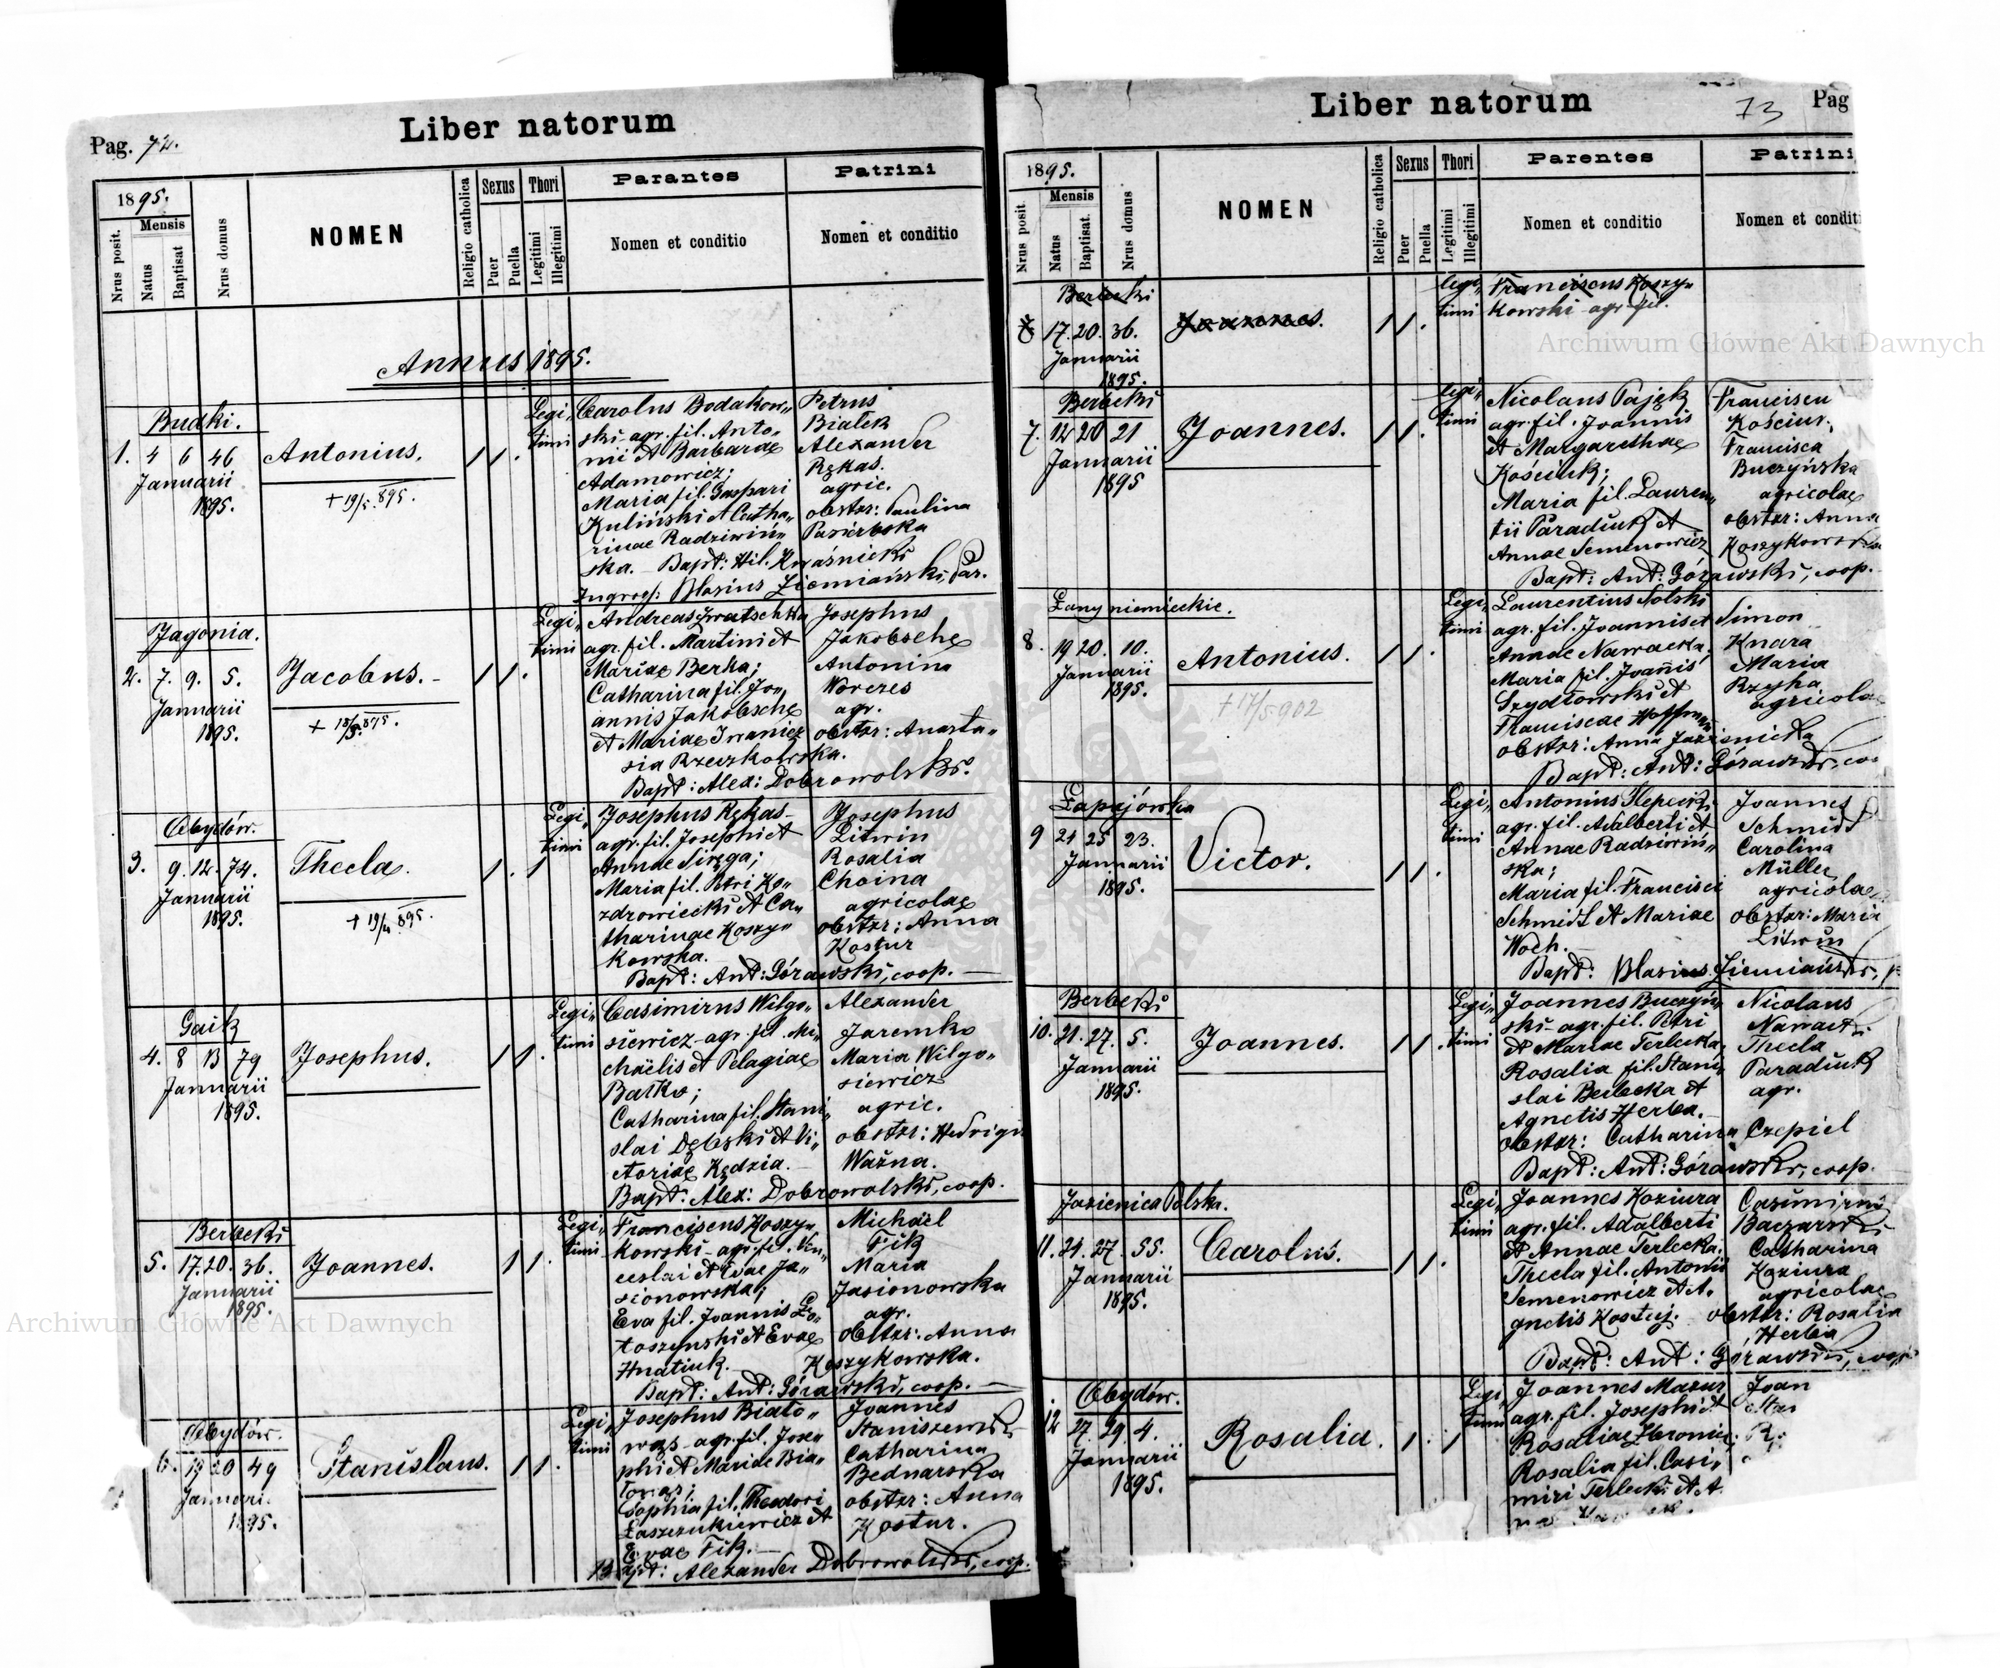 Pag. 72.
Liber natorum
1895.
Mensis
Nrus posit.
Natus
Baptisat
Nrus domus
NOMEN
Religio catholica
Sexus
Puer
Puella
Thori
Legitimi
Illegitimi
Parantes
Nomen et conditio
Patrini
Nomen et conditio
Annus 1895.
Budki.
1. 4 6 46
Januarii
1895.
Antonius.
+ 19/5. 895.
Legi„
timi
Carolus Bodakow„
ski agr. fil. Anto„
nii et Barbarae
Adamowicz;
Maria fil. Gaspari
Kuliński et Catha„
rinae Radziwiń„
ska. Bapt: Hil. Kwaśnicki
Ingross: Blasius Ziemiański, Par.
Petrus
Białek
Alexander
Rękas.
agric.
obstzr: Paulina
Pasierbska
Jagonia.
2. 7. 9. 5.
Januarii
1895.
Jacobus.
Legi„
timi
agr. fil. Martini et
Mariae Berka;
Catharina fil. Jo„
annis Jakobsche
et Mariae Iwanicz
sia Rzeczkowska.
Bapt: Alex: Dobrowolski.
Josephus
Jakobsche
Antonina
Worezes
agr.
obstzr: Anasta„
Obydów.
3. 9. 12. 74.
Januarii
1895.
Thecla.
Legi„
timi
Josephus Rękas
agr. fil. Josephi et
Annae Siręga;
Maria fil. Petri Ko„
zdrowiecki et Ca„
tharinae Koszy„
kowska.
Bapt: Ant: Górawski, coop.
Josephus
Litwin
Rosalia
Choina
agricolae
obstzr: Anna
Kostur
Gaik
4. 8 13 79
Januarii
1895.
Josephus.
Legi„
timi
Casimirus Wilgo„
siewicz agr. fil. Mi„
chaëlis et Pelagiae
Batko;
Catharina fil. Stani„
slai Dębski et Vi„
ctoriae Kędzia.
Bapt: Alex: Dobrowolski, coop.
Alexander
Jaremko
Maria Wilgo„
siewicz
agric.
obstzr: Hedvigis
Ważna.
Berbeki
5. 17. 20. 36.
Januarii
1895.
Joannes.
Legi„
timi
Franciscus Koszy„
kowski agr. fil. Ven„
ceslai et Evae Ja„
sionowska;
Eva fil. Joannis Ło„
toszynski et Evae
Hnatiuk.
Bapt: Ant: Górawski, coop.
Michaël
Fik
Maria
Jasionowska
agr.
obstzr: Anna
Koszykowska.
Obydów.
6. 19 20 49
Januari.
1895.
Stanislaus.
Legi„
timi
Josephus Biało„
wąs agr. fil. Jose„
phi et Mariae Bia„
łowąs;
Sophia fil. Theodori
Łaszczukiewicz et
Evae Fik.
Bapt: Alexander Dobrowolski, coop.
Joannes
Staniszewski
Catharina
Bednarska
obstzr: Anna
Kostur.
Liber natorum
73
Pag
1895.
Mensis
Nrus posit
Natus
Baptisat.
Nrus domus
NOMEN
Religio catholica
Sexus
Puer
Puella
Thori
Legitimi
Illegitimi
Parentes
Nomen et conditio
Patrini
Nomen et condit
Berbeki
17. 20. 36.
Januarii
1895.
Joannes.
legi„
timi
Franciscus Koszy„
kowski agr. fil.
Berbecki
7. 12 20 21
Januarii
1895
Joannes.
legi„
timi
Nicolaus Pająk
agr. fil. Joannis
et Margarethae
Kościuk;
Maria fil. Lauren„
tii Paradiuk et
Annae Semenowicz
Bapt: Ant: Górawski, coop.
Francisca
Buczyńska
agricolae
obstzr: Anna
Koszykowska
Łany niemieckie.
8. 19 20. 10.
Januarii
1895.
Antonius.
+ 17/5 902
Legi„
timi
Laurentius Solski
agr. fil. Joannis et
Annae Nawacka;
Maria fil. Joannis
Szydłowski et
Franciscae Hoffman
obstzr: Anna
Bapt: Ant: Górawski, co
Simon
Knara
Maria
Rzyha
agricolae
Łapajówka
9 21 25 23.
Januarii
1895.
Victor.
Legi„
timi
agr. fil. Adalberti et
Annae Radziwiń„
ska;
Maria fil. Francisci
Schmidt et Mariae
Woch.
Bapt: Blasius Ziemiański, p
Joannes
Schmidt
Carolina
Müller
agricolae
obstzr: Maria
Litwin
Berbeki
10. 21. 27. 5.
Januarii
1895.
Joannes.
Legi„
timi
Joannes Buczyń„
ski agr. fil. Petri
et Mariae Terlecka;
Rosalia fil. Stani„
slai Berbeka et
Agnetis Herba.
obstzr: Catharina Czepiel
Bapt: Ant: Górawski, coop.
Nicolaus
Thecla
Paradiuk
agr.
Jazienica Polska.
11. 24. 27. 55.
Januarii
1895.
Carolus.
Legi„
timi
Joannes Koziura
agr. fil. Adalberti
et Annae Terlecka;
Thecla fil. Antonii
Semenowicz et A„
gnetis Kostuj.
Bapt: Ant: Górawski, coop
Casimirus
Baczarski
Catharina
Koziura
agricolae
obstzr: Rosalia
Herba
Obydów.
12 27. 29. 4.
Januarii
1895.
Rosalia.
Legi„
timi
Joannes Mazur
agr. fil. Josephi et
Rosalia fil. Casi„
miri Terlecki et A.
Joan
Archiwum Główne Akt Dawnych
Archiwum Główne Akt Dawnych